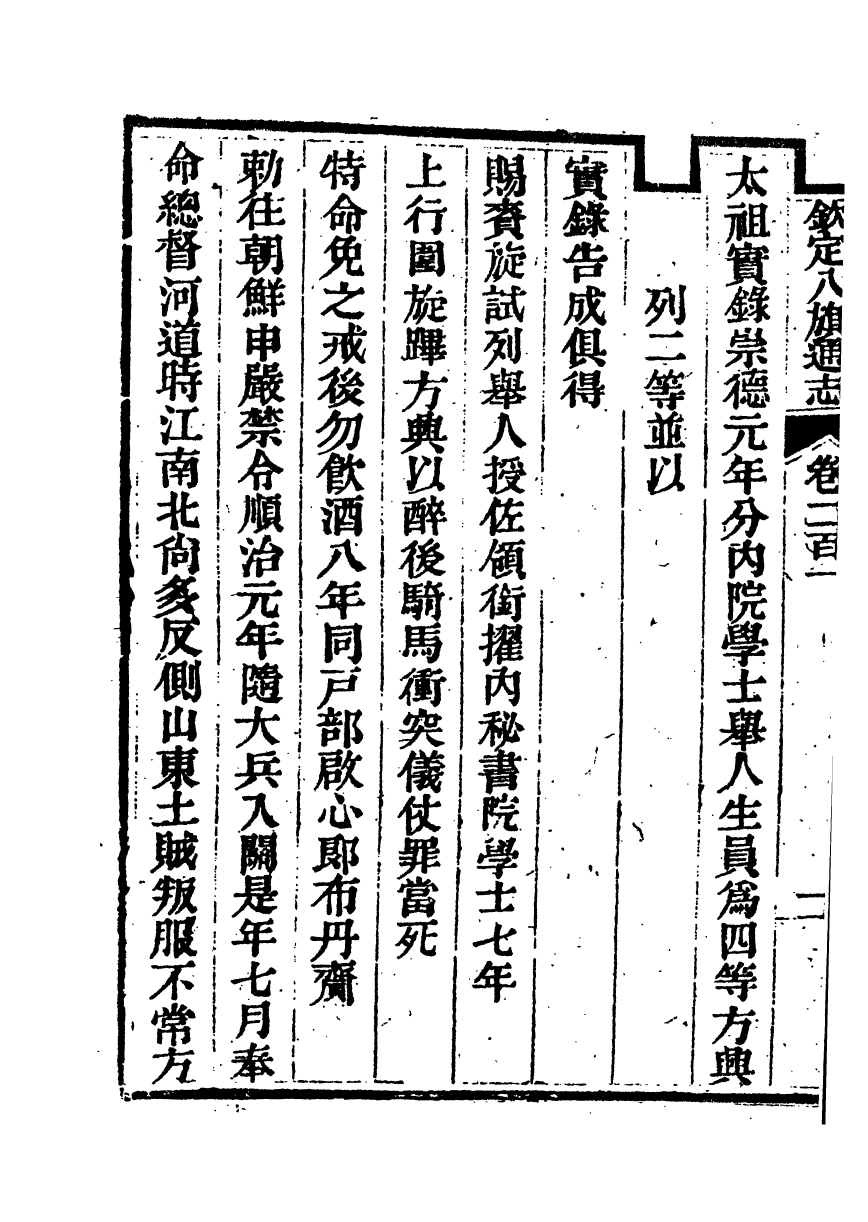 欽定八旗通志 卷二百一 二
太祖實錄崇德元年分內院學士舉人生員爲四等方興
列二等並以
實錄告成俱得
賜賚旋試列舉人授佐領銜擢內秘書院學士七年
上行圍旋蹕方興以醉後騎馬衝突儀仗罪當死
特命免之戒後勿飮酒八年同戸部啟心郎布丹齎
勅往朝鮮申嚴禁令順治元年隨大兵入關是年七月奉
命總督河道時江南北尙多反側山東土賊叛服不常方